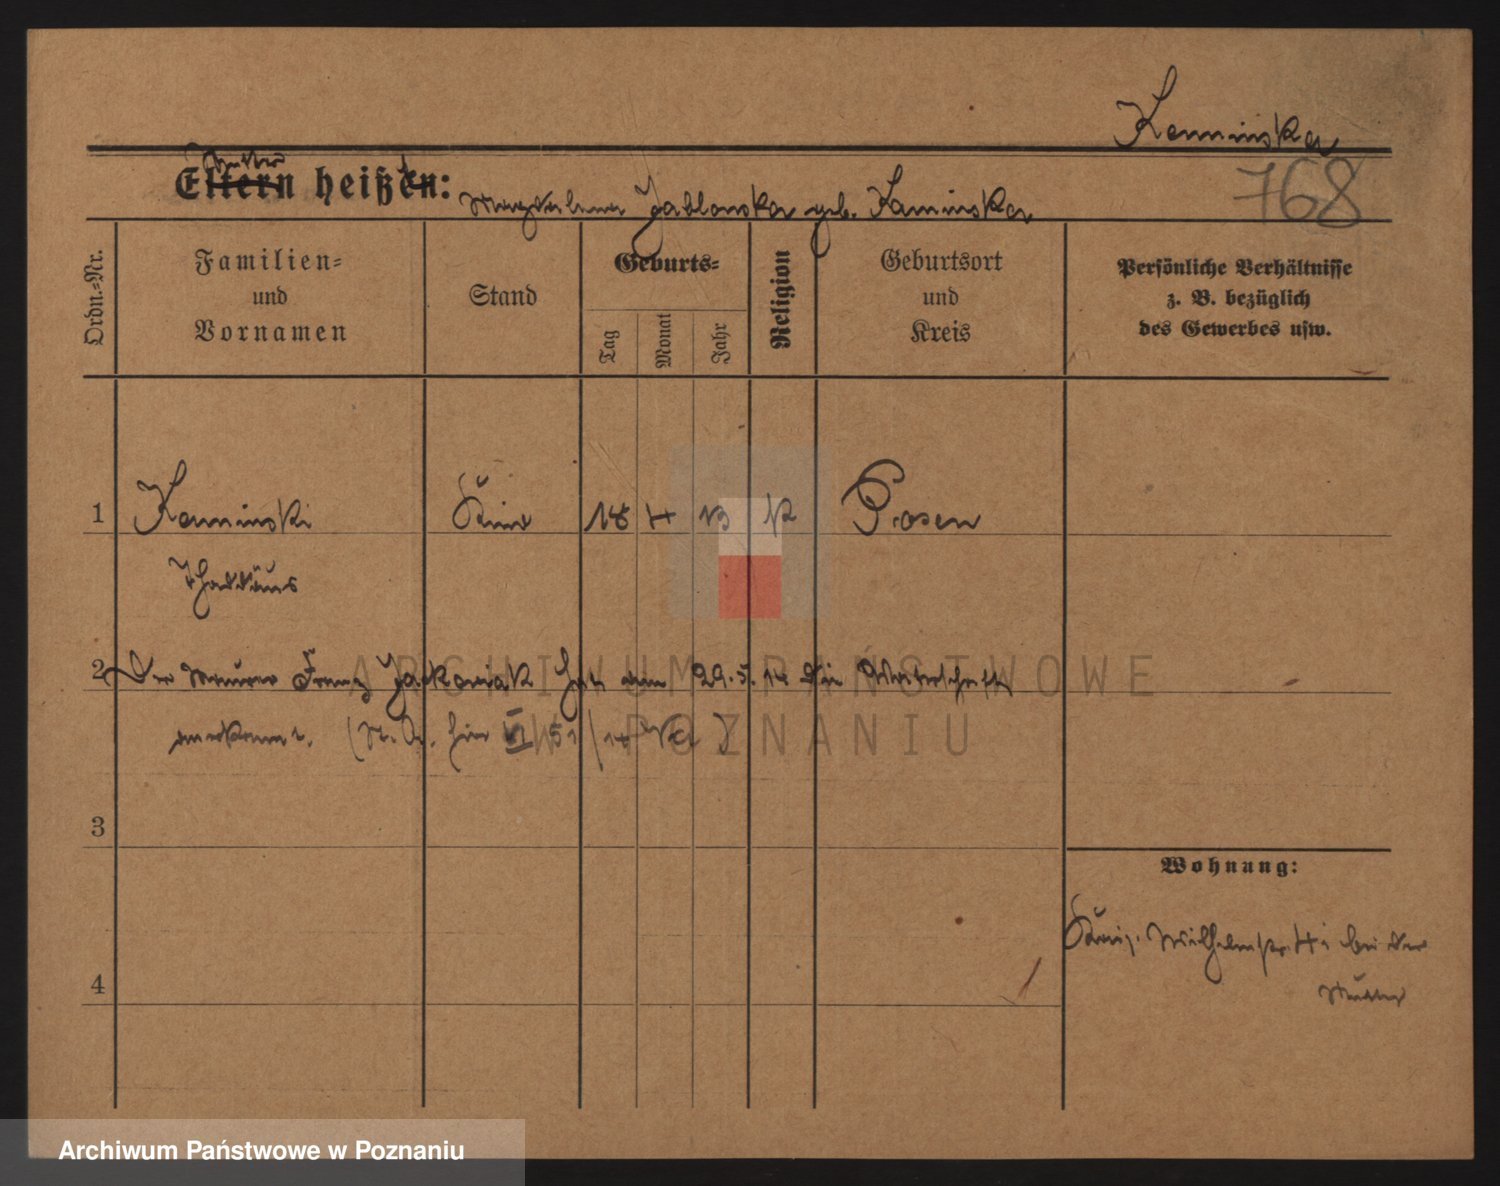 Kaminska
768
Mutter
Eltern heißen:
Magdalena Jablonska geb. Kaminska
Ordn.-Nr.
Familien-
und
Vornamen
Stand
Geburts-
Tag
Monat
Jahr
Religion
Geburtsort
und
Kreis
Persönliche Verhältnisse
z. B. bezüglich
des Gewerbes usw.
1 Kaminski Kind 18 4 13 K Posen
Thaddäus
2 Der Maurer Franz Jackowiak hat am 29.5.14 die Vaterschaft
anerkannt. (St. A. hier VI 51/14)
3
Wohnung:
4
Wilhelmstr. bei der
Mutter
ARCHIWUM PAŃSTWOWE
W POZNANIU
Archiwum Państwowe w Poznaniu